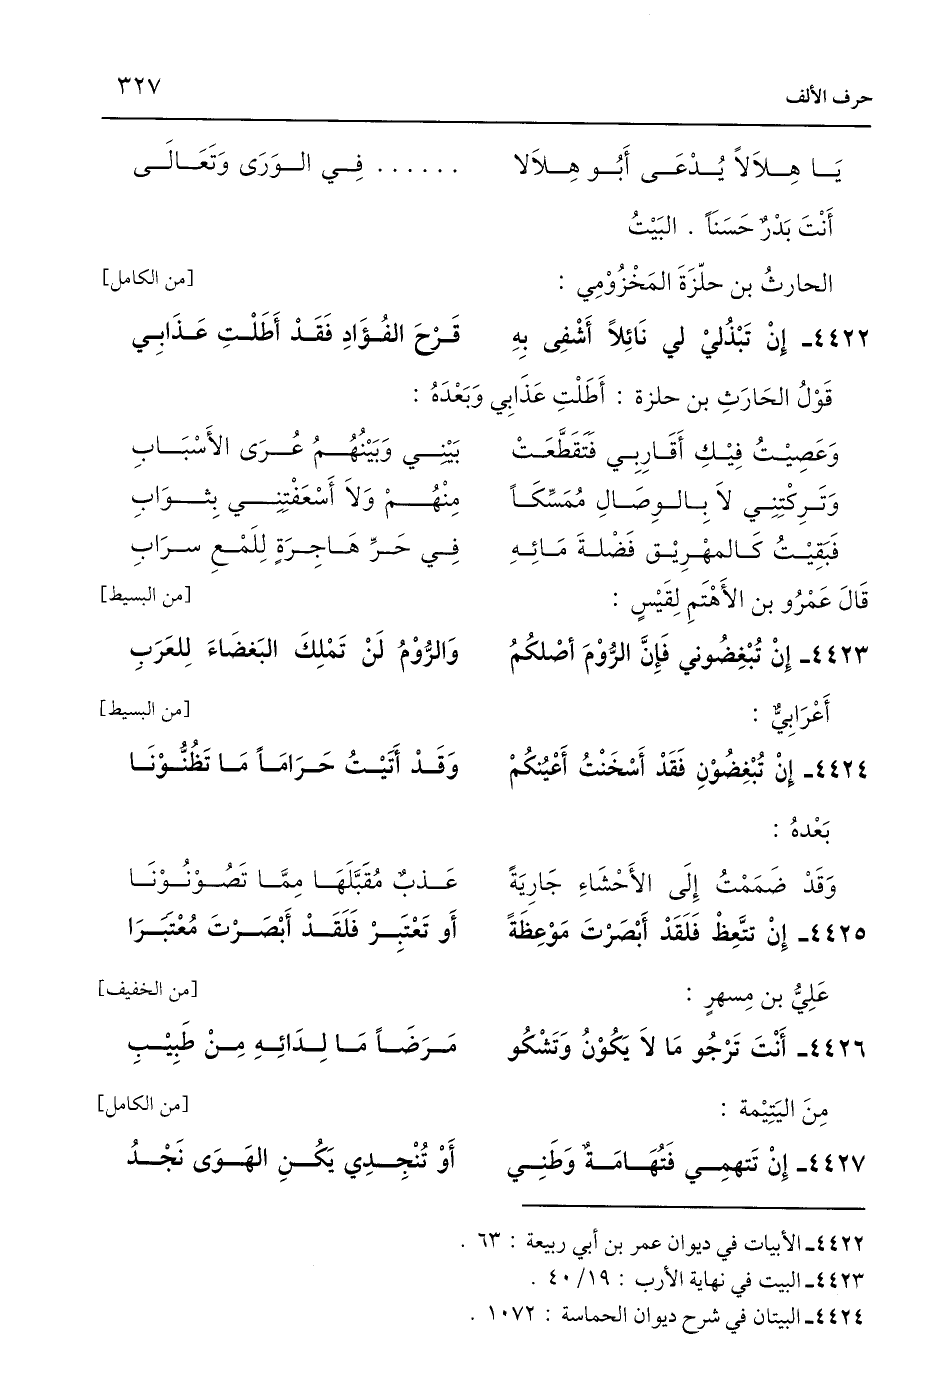 حرف الألف ٣٢٧
يَـا هِـلاَلاً يُـدْعَـى أَبُـو هِـلاَلا ...... فِـي الـوَرَى وَتَعَـالَـى
أَنْتَ بَدْرٌ حَسَنَاً . البَيْتُ
الحارثُ بن حلّزَةَ المَخْزُوْمِي : [من الكامل]
٤٤٢٢ـ إِنْ تَبْذُلِيْ لي نَائِلاً أَشْفِى بِهِ قَرْحَ الفُـؤَادِ فَقَـدْ أَطَلْـتِ عَـذَابِـي
قَوْلُ الحَارَثِ بن حلزة : أَطَلْتِ عَذَابِي وَبَعْدَهُ :
وَعَصِيْـتُ فِيْـكِ أَقَـارِبِـي فَتَقَطَّعَـتْ بَيْنِـي وَبَيْنَهُـمُ عُـرَى الأَسْبَـابِ
وَتَـرِكْتِنِـي لاَ بِـالـوِصَـالِ مُمَسَّكـاً مِنْهُـمْ وَلاَ أَسْعَفْتِنِـي بِثَـوَابِ
فَبَقِيْـتُ كَـالمهْرِيْـقِ فَضْلَـةَ مَـائِـهِ فِـي حَـرِّ هَـاجِـرَةٍ لِلَمْـعِ سـرَابِ
قَالَ عَمْرُو بن الأَهْتَمِ لِقَيْسٍ : [من البسيط]
٤٤٢٣ـ إِنْ تُبْغِضُوني فَإِنَّ الرُّوْمَ أَصْلكُمُ وَالرُّوْمُ لَنْ تَمْلِكَ البَغضَاءَ لِلعَرَبِ
أَعْرَابِيٌّ : [من البسيط]
٤٤٢٤ـ إِنْ تُبْغِضُوْنِ فَقَدْ أَسْخَنْتُ أَعْيُنكُمْ وَقَـدْ أَتَيْـتُ حَـرامَـاً مَـا تَظُنُّـوْنَـا
بَعْدهُ :
وَقَدْ ضَمَمْتُ إِلَى الأَحْشَاءِ جَارِيَةً عَـذبٌ مُقَبَّلَهَـا مِمَّـا تَصُـوْنُـوْنَـا
٤٤٢٥ـ إِنْ تتَّعِظْ فَلَقَدْ أَبْصَرْتَ مَوْعِظَةً أَو تَعْتَبِـرْ فَلَقَـدْ أَبْصَـرْتَ مُعْتَبَـرَا
عَلِيُّ بن مِسهرٍ : [من الخفيف]
٤٤٢٦ـ أَنْتَ تَرْجُو مَا لاَ يَكُوْنُ وَتَشْكُو مَـرَضَـاً مَـا لِـدَائِـهِ مِـنْ طَبِيْـبِ
مِنَ اليَتِيْمة : [من الكامل]
٤٤٢٧ـ إِنْ تَتهمِـي فَتُهَـامَـةٌ وَطَنِـي أَوْ تُنْجِـدِي يَكُـنِ الهَـوَى نَجْـدُ
٤٤٢٢ـ الأبيات في ديوان عمر بن أبي ربيعة : ٦٣ .
٤٤٢٣ـ البيت في نهاية الأرب : ١٩/ ٤٠ .
٤٤٢٤ـ البيتان في شرح ديوان الحماسة : ١٠٧٢ .